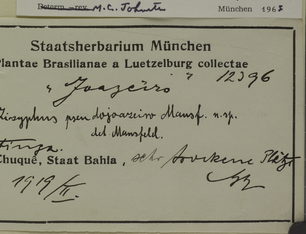 Determ. rev. M.C. Johnst München 1963
Staatsherbarium München
Plantae Brasilianae a Luetzelburg collectae
" Joazeiro " 12396
Zizyphus pseudojoazeiro Mansf. n.sp.
det. Mansfeld.
Chuquê, Staat Bahia, sehr trockene Plätze
1919/II.